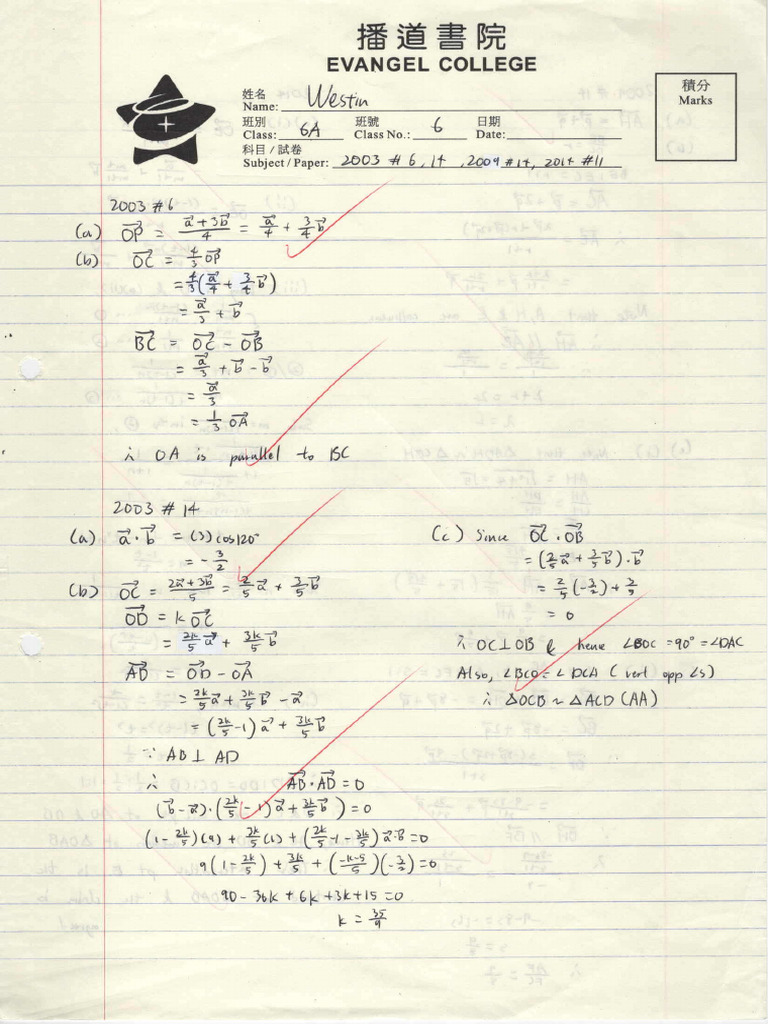 播道書院
EVANGEL COLLEGE
姓名
Name: Westin
班別 班號 日期
Class: 6A Class No.: 6 Date:
科目 / 試卷
Subject / Paper: 2003 #6, 14, 2009 #14, 2014 #11
積分
Marks
2003 #6
(a) \vec{OP} = \frac{\vec{a}+3\vec{b}}{4} = \frac{\vec{a}}{4} + \frac{3}{4}\vec{b}
(b) \vec{OC} = \frac{4}{3}\vec{OP}
= \frac{4}{3}(\frac{\vec{a}}{4} + \frac{3}{4}\vec{b})
= \frac{\vec{a}}{3} + \vec{b}
\vec{BC} = \vec{OC} - \vec{OB}
= \frac{\vec{a}}{3} + \vec{b} - \vec{b}
= \frac{\vec{a}}{3}
= \frac{1}{3}\vec{OA}
∴ OA is parallel to BC
2003 #14
(a) \vec{a}·\vec{b} = (3)cos120°
= -\frac{3}{2}
(b) \vec{OC} = \frac{2\vec{a}+3\vec{b}}{5} = \frac{2}{5}\vec{a} + \frac{3}{5}\vec{b}
\vec{OD} = k\vec{OC}
= \frac{2k}{5}\vec{a} + \frac{3k}{5}\vec{b}
\vec{AD} = \vec{OD} - \vec{OA}
= \frac{2k}{5}\vec{a} + \frac{3k}{5}\vec{b} - \vec{a}
= (\frac{2k}{5}-1)\vec{a} + \frac{3k}{5}\vec{b}
∵ AB⊥AD
∴ \vec{AB}·\vec{AD} = 0
(\vec{b}-\vec{a})·(\frac{2k}{5}-1)\vec{a}+\frac{3k}{5}\vec{b}) = 0
(1-\frac{2k}{5})(9)+\frac{3k}{5}(1)+(\frac{2k}{5}-1-\frac{3k}{5})\vec{a}·\vec{b}=0
9(1-\frac{2k}{5})+\frac{3k}{5}+(\frac{-k-5}{5})(-\frac{3}{2})=0
90-36k+6k+3k+15=0
k = \frac{35}{9}
(c) Since \vec{OC}·\vec{OB}
= (\frac{2}{5}\vec{a}+\frac{3}{5}\vec{b})·\vec{b}
= \frac{2}{5}(-\frac{3}{2})+\frac{3}{5}
= 0
∴ OC⊥OB & hence ∠BOC = 90° = ∠DAC
Also, ∠BCO = ∠DCA (vert opp ∠s)
∴ △OCB ~ △ACD (AA)